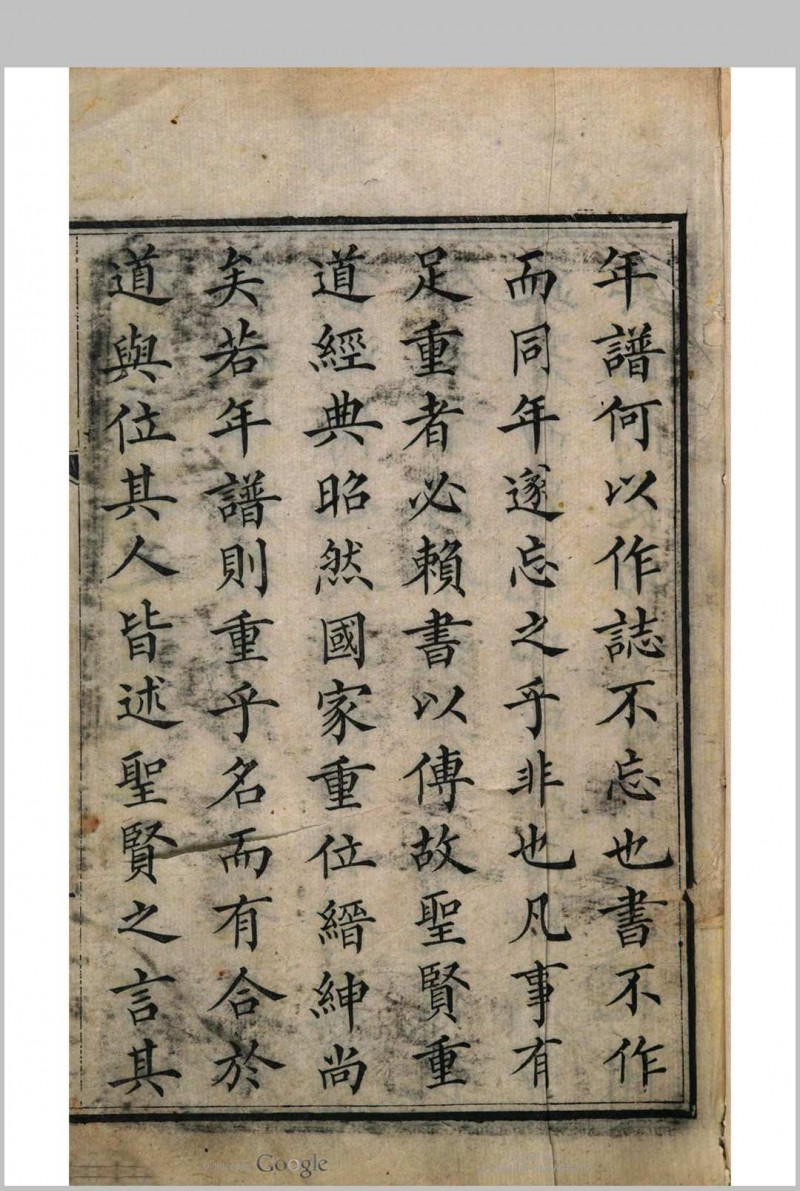 年譜何以作誌不忘也書不作
而同年遂忘之乎非也凡事有
足重者必賴書以傳故聖賢重
道經典昭然國家重位縉紳尚
矣若年譜則重乎名而有合於
道與位其人皆述聖賢之言其
Google